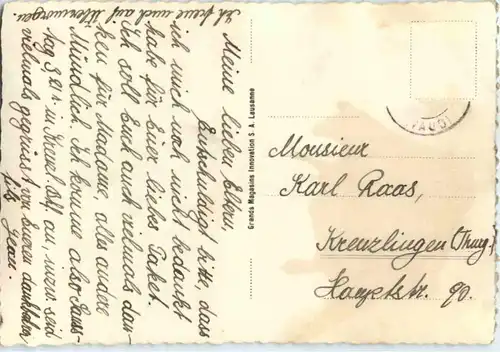 Meine lieben Eltern,
Entschuldigt bitte, dass
ich mich noch nicht bedankt
habe für Euer liebes Paket.
Ich soll Euch auch vielmals dan-
ken für Madame, alles andere
Mündlich. Ich komme also Sams-
tag in an, seid
vielmals gegrüsst von Eurem dankbaren
Ich freue mich auf Übermorgen
Grands Magasins Innovation S. A. Lausanne
(VAUD)
Monsieur
Karl Raas,
Kreuzlingen (Thurg.)
Hauptstr. 90.